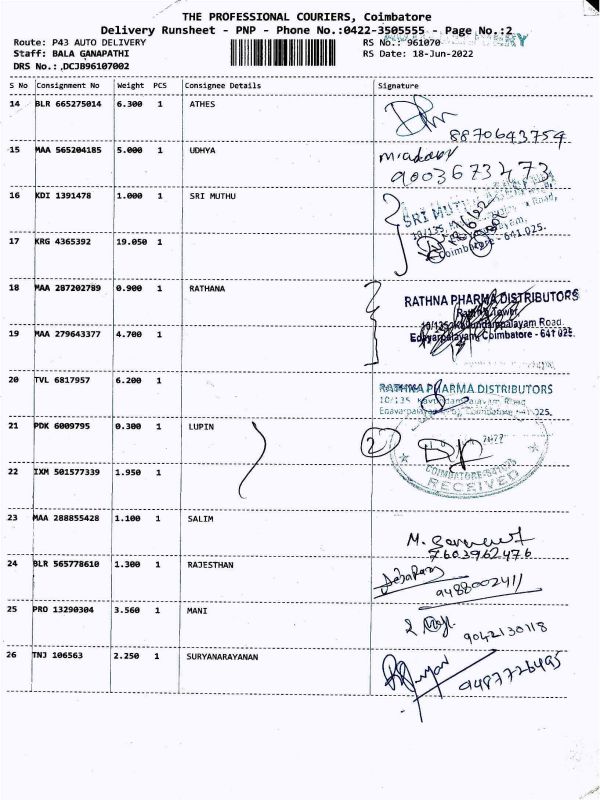 THE PROFESSIONAL COURIERS, Coimbatore
Delivery Runsheet - PNP - Phone No.:0422-3505555 - Page No.:2
Route: P43 AUTO DELIVERY RS No.: 961070
Staff: BALA GANAPATHI RS Date: 18-Jun-2022
DRS No.: DCJB96107002
S No Consignment No Weight PCS Consignee Details Signature
14 BLR 665275014 6.300 1 ATHES
8870643754
15 MAA 565204185 5.000 1 UDHYA
9003673473
16 KDI 1391478 1.000 1 SRI MUTHU
SRI MUTHU
Coimbatore - 641 025.
17 KRG 4365392 19.050 1
18 MAA 287202789 0.900 1 RATHANA
RATHNA PHARMA DISTRIBUTORS
Rathna Tower,
10/135, Kavundampalayam Road,
Edayarpalayam, Coimbatore - 641 025.
19 MAA 279643377 4.700 1
20 TVL 6817957 6.200 1
RATHNA PHARMA DISTRIBUTORS
10/135, Kavundampalayam Road
Edayarpalayam, Coimbatore - 641 025.
21 PDK 6009795 0.300 1 LUPIN
2
COIMBATORE-641025
RECEIVED
22 IXM 501577339 1.950 1
23 MAA 288855428 1.100 1 SALIM
7603962476
24 BLR 565778610 1.300 1 RAJESTHAN
9488002411
25 PRO 13290304 3.560 1 MANI
9042130118
26 TNJ 106563 2.250 1 SURYANARAYANAN
9487726495